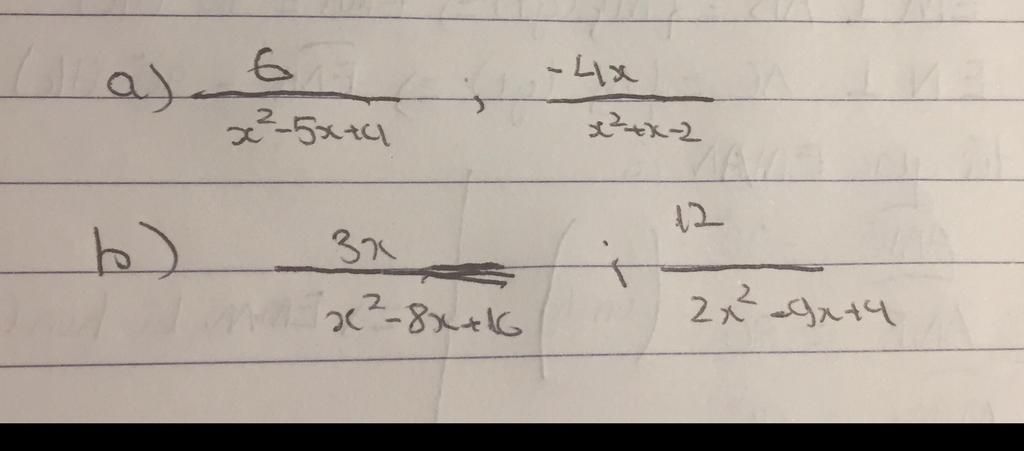 a) 6/(x²-5x+4) ; -4x/(x²+x-2)
b) 3x/(x²-8x+16) ; 12/(2x²-9x+4)